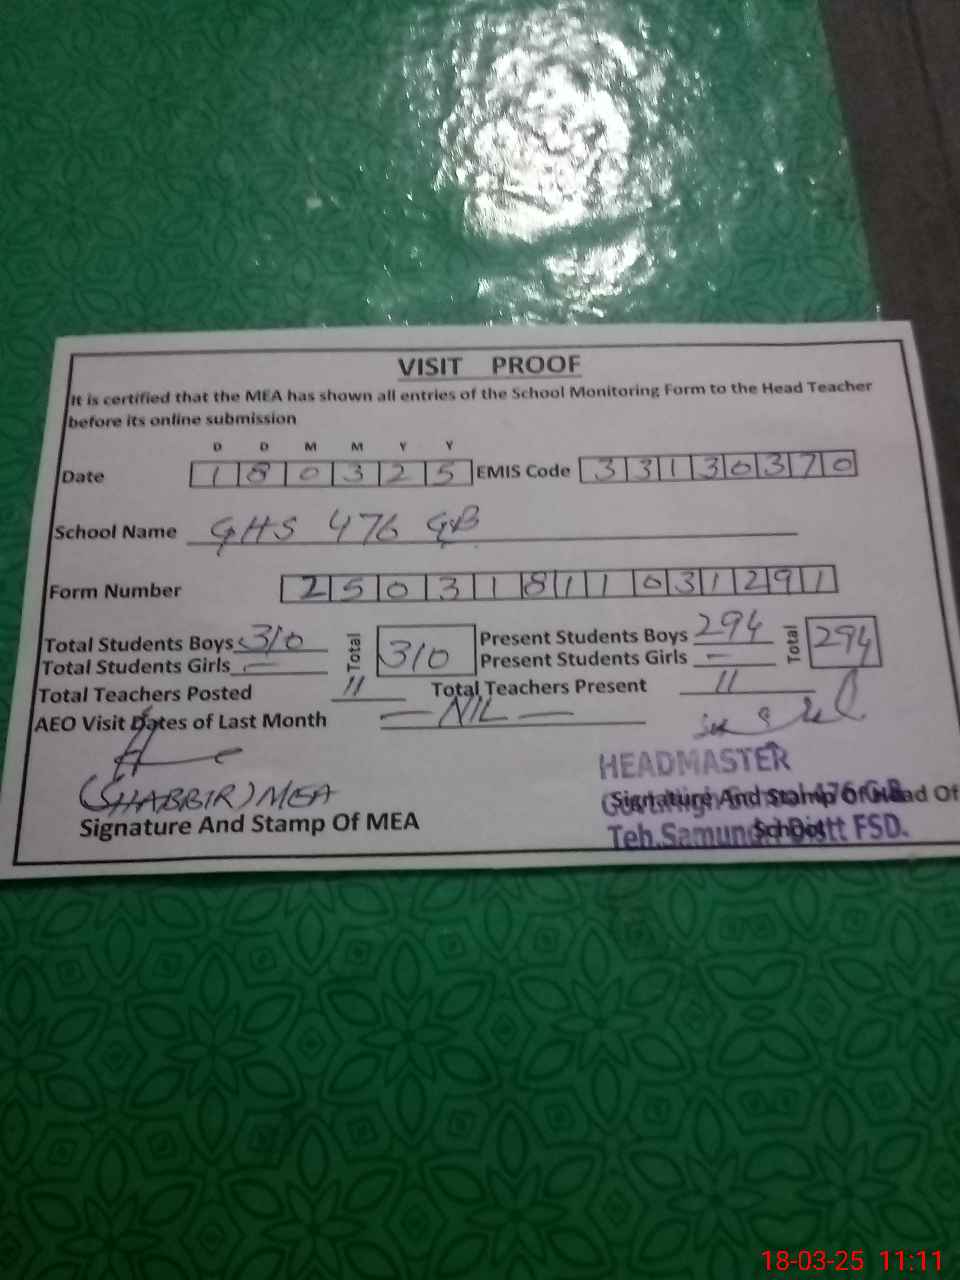 VISIT PROOF
It is certified that the MEA has shown all entries of the School Monitoring Form to the Head Teacher
before its online submission
D D M M Y Y
Date 180325 EMIS Code 33130370
School Name GHS 476 GB
Form Number 25031811031291
Total Students Boys 310 Total 310 Present Students Boys 294 Total 294
Total Students Girls — Present Students Girls —
Total Teachers Posted 11 Total Teachers Present 11
AEO Visit Dates of Last Month — NIL —
HEADMASTER
(SHABBIR) MEA
Signature And Stamp Of MEA
Signature And Stamp Of Head Of
School
476 G.B
Teh. Samundri Distt FSD.
18-03-25 11:11